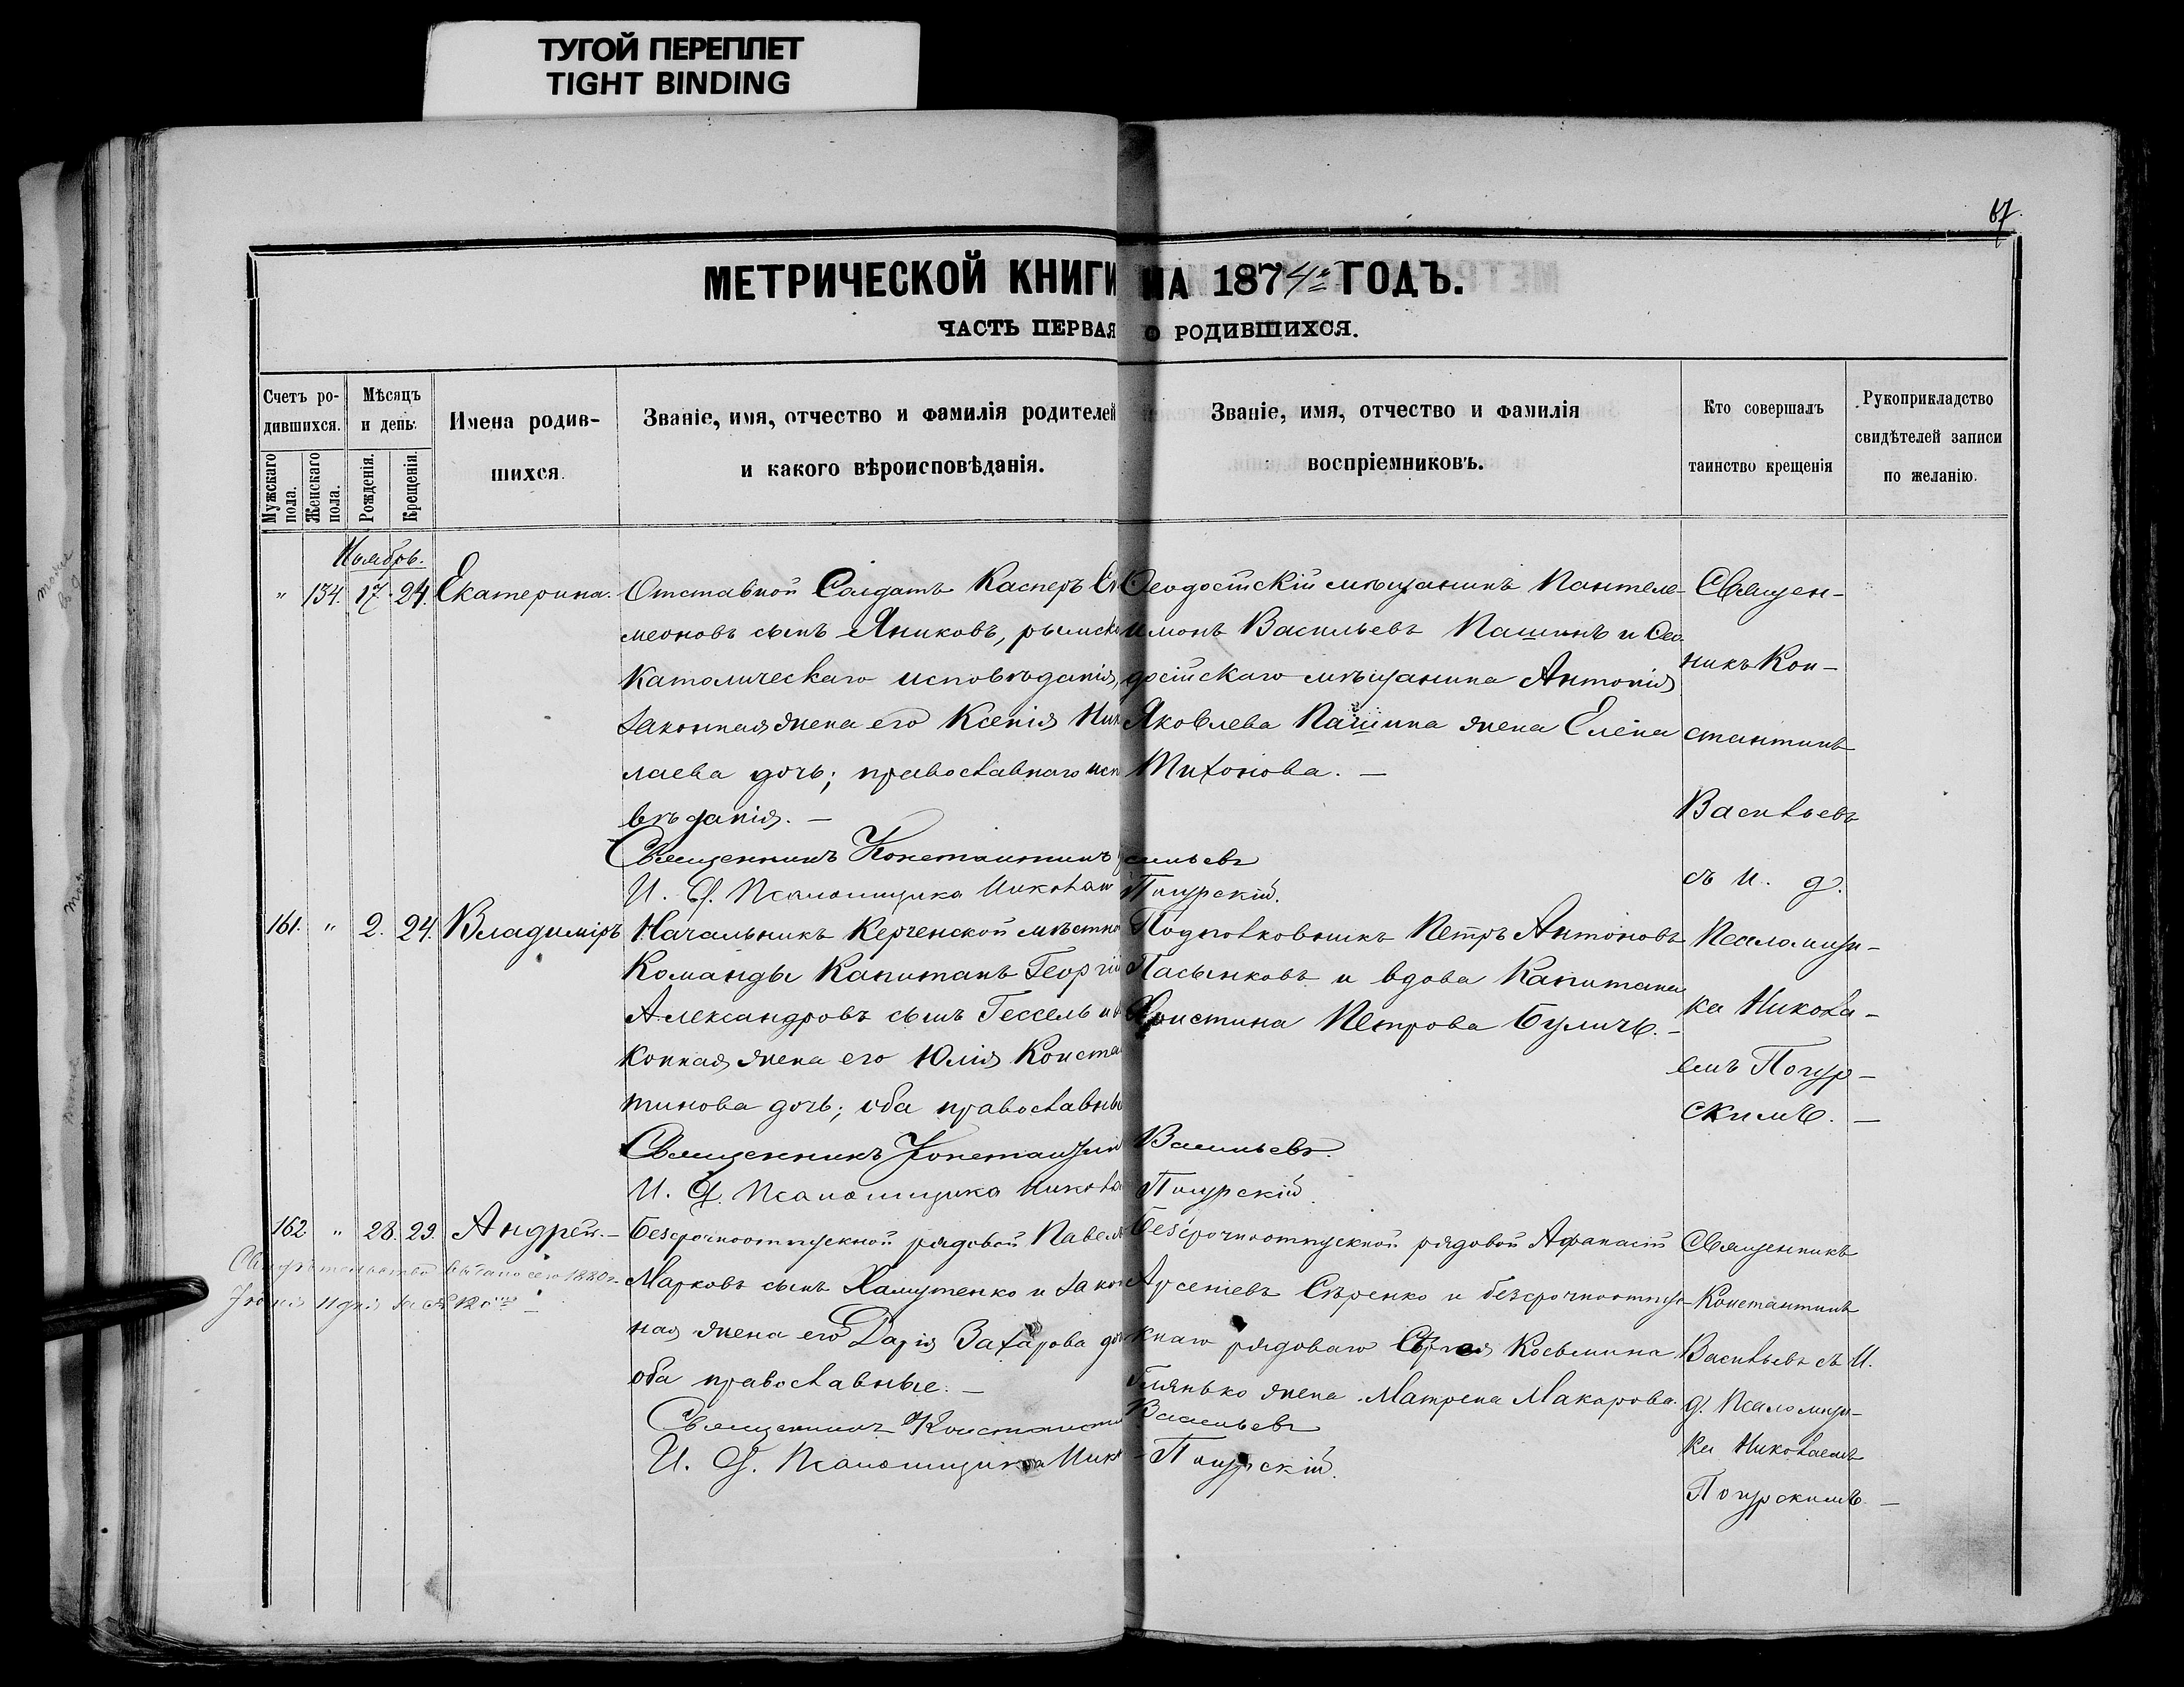 ТУГОЙ ПЕРЕПЛЕТ
TIGHT BINDING
67.
МЕТРИЧЕСКОЙ КНИГИ НА 1874й ГОДЪ.
ЧАСТЬ ПЕРВАЯ О РОДИВШИХСЯ.
Счетъ ро-
дившихся.
Мужскаго пола.
Женскаго пола.
Мѣсяцъ
и день.
Рожденія.
Крещенія.
Имена родив-
шихся.
Званіе, имя, отчество и фамилія родителей
и какого вѣроисповѣданія.
Званіе, имя, отчество и фамилія
воспріемниковъ.
Кто совершалъ
таинство крещенія
Рукоприкладство
свидѣтелей записи
по желанію.
Ноябрь.
" 134. 17 24. Екатерина.
Отставной Солдатъ Касперъ
меоновъ сынъ Яниковъ, римско
Католическаго исповѣданія,
законная жена его Ксенія Ник
лаева дочь; православнаго исп
вѣданія. —
Священникъ Константинъ
И. Д. Псаломщика Николай
Ѳеодосійскій мѣщанинъ Пантеле-
имонъ Васильевъ Пашинъ и Ѳео-
досійскаго мѣщанина Антонія
Яковлева Пашина жена Елена
Тихонова. —
сильевъ
Погурскій.
Священ-
никъ Кон-
стантинъ
Васильевъ
съ И. д.
Псаломщи-
ка Никола-
емъ Погур-
скимъ. —
161. " 2. 24. Владиміръ
Начальникъ Керченской мѣстно
Команды Капитанъ Георгій
Александровъ сынъ Гессель и
конная жена его Юлія Конста
тинова дочь; оба православны
Священникъ Константин
И. Д. Псаломщика Никола
Подполковникъ Петръ Антоновъ
Пасынковъ и вдова Капитана
Христина Петрова Буличъ. —
Васильевъ.
Погурскій.
162 " 28. 29. Андрей. —
Свидѣтельство выдано сего 1880 г.
Іюня 11 дня за №
Безсрочноотпускной рядовой Павелъ
Марковъ сынъ Хамутенко и закон
ная жена его Дарія Захарова до
оба православные. —
Священникъ Константин
И. Д. Псаломщика Ник
Безсрочноотпускной рядовой Афанасій
Арсеніевъ Сѣренко и безсрочноотпус-
кнаго рядоваго Сергея Косьмина
жена Матрена Макарова.
Васильевъ
Погурскій.
Священникъ
Константинъ
Васильевъ съ И.
д. Псаломщи-
ка Николаемъ
Погурскимъ. —